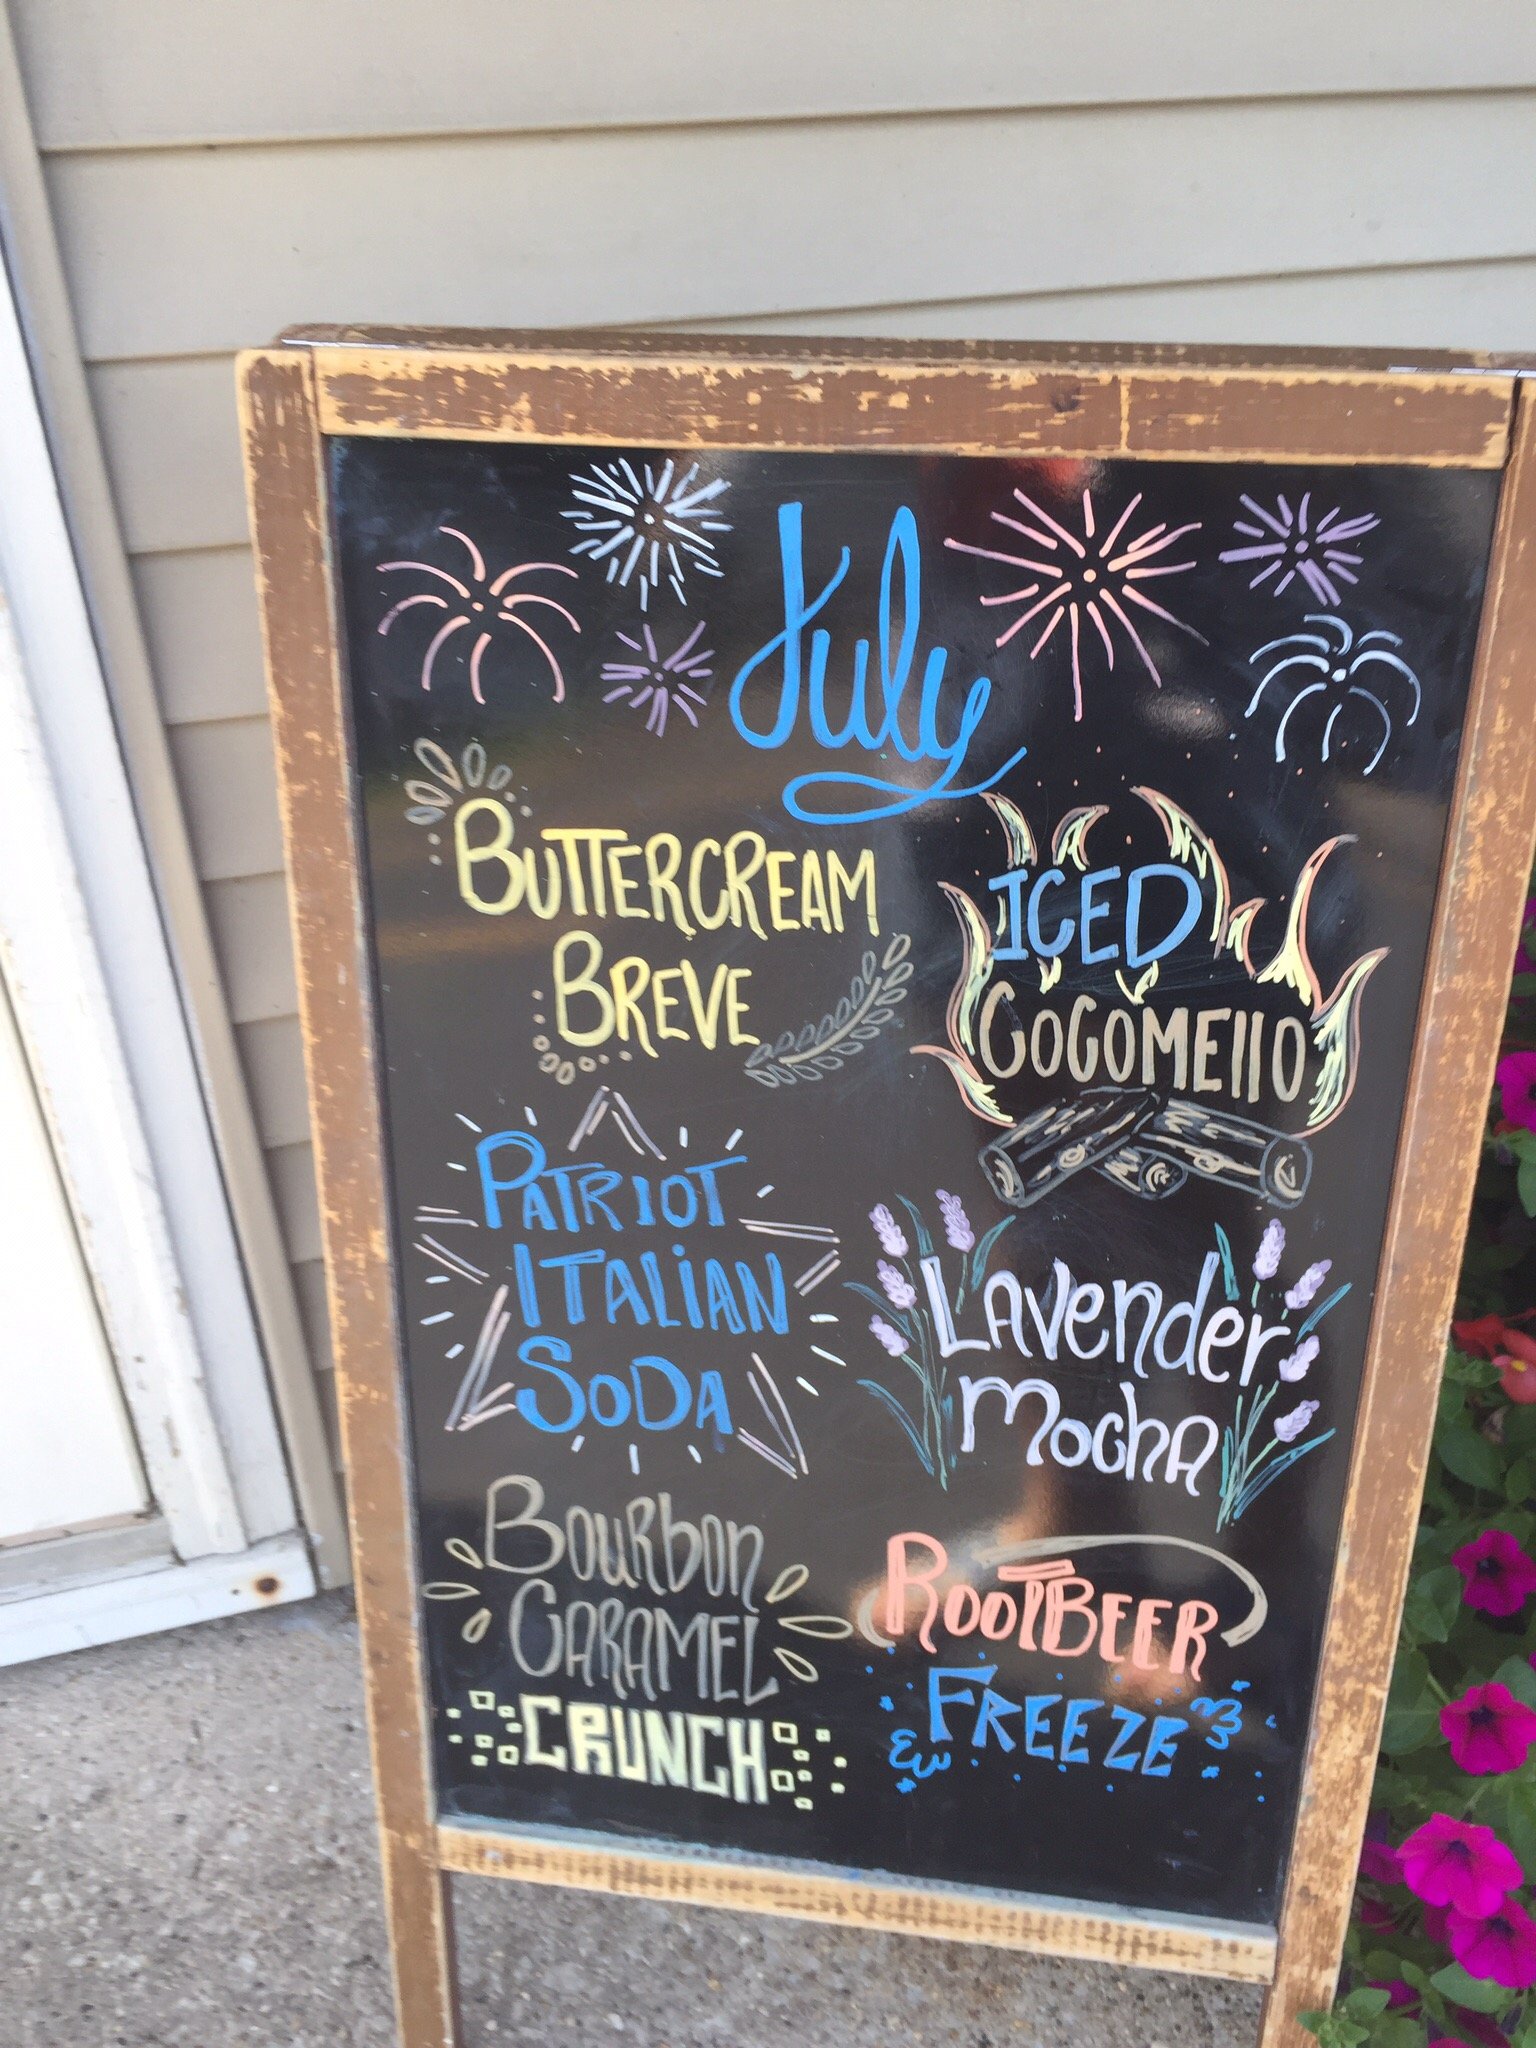 July
BUTTERCREAM
BREVE
ICED
COCOMEllO
PATRIOT
ITALiAN
SODA
LAvender
mochA
Bourbon
CARAMEL
CRUNCH
ROOTBEER
FREEZE